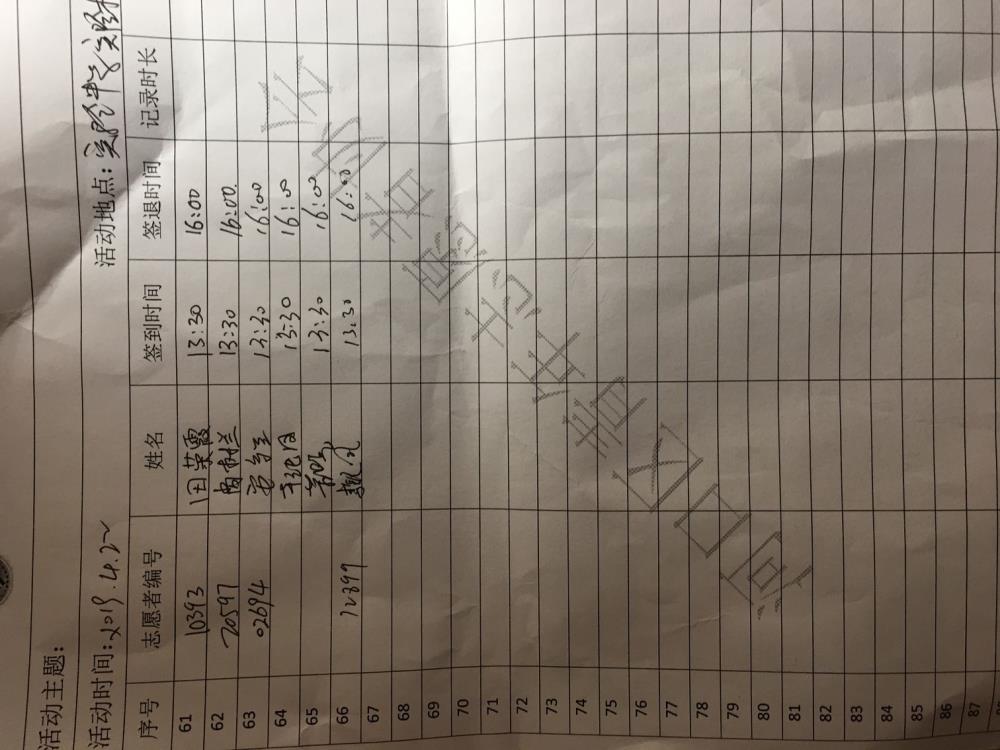 活动主题：
活动时间：2019.4.22 活动地点：实验中学实验
序号 志愿者编号 姓名 签到时间 签退时间 记录时长
61 10393 田荣霞 13:30 16:00
62 20597 13:30 16:00
63 02694 13:30 16:00
64 13:30 16:00
65 13:30 16:00
66 12899 13:30 16:00
67
68
69
70
71
72
73
74
75
76
77
78
79
80
81
82
83
84
85
86
87